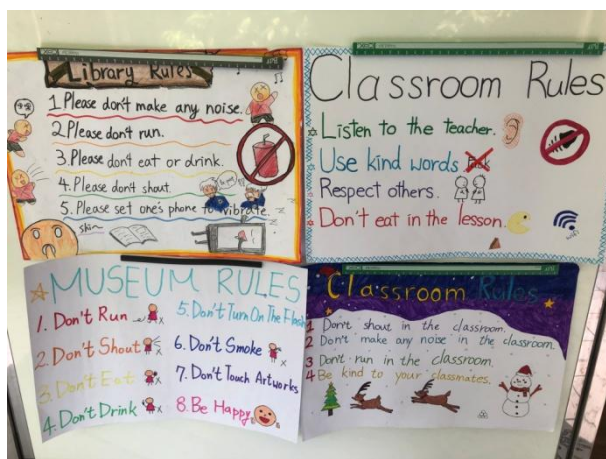 Library Rules
1 Please don't make any noise.
2.Please don't run.
3.Please don't eat or drink.
4.Please don't shout.
5.Please set one's phone to vibrate.
Classroom Rules
Listen to the teacher.
Use kind words
Respect others.
Don't eat in the lesson.
MUSEUM RULES
1. Don't Run
2. Don't Shout
3. Don't Eat
4. Don't Drink
5. Don't Turn On The
6. Don't Smoke
7. Don't Touch Artworks
8. Be Happy
Classroom Rules
1 Don't shout in the classroom.
2 Don't make any noise in the classroom.
3 Don't run in the classroom.
4 Be kind to your classmates.